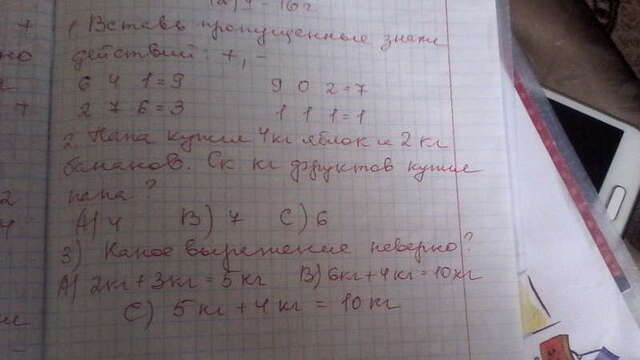 1. Вставь пропущенные знаки
действий: +, -
6 4 1=9 9 0 2=7
2 7 6=3 1 1 1=1
2. Папа купил 4кг яблок и 2 кг
бананов. Ск. кг фруктов купил
папа?
А) 4 В) 7 С) 6
3) Какое выражение неверно?
А) 2кг+3кг=5кг В) 6кг+4кг=10кг
С) 5кг+4кг=10кг